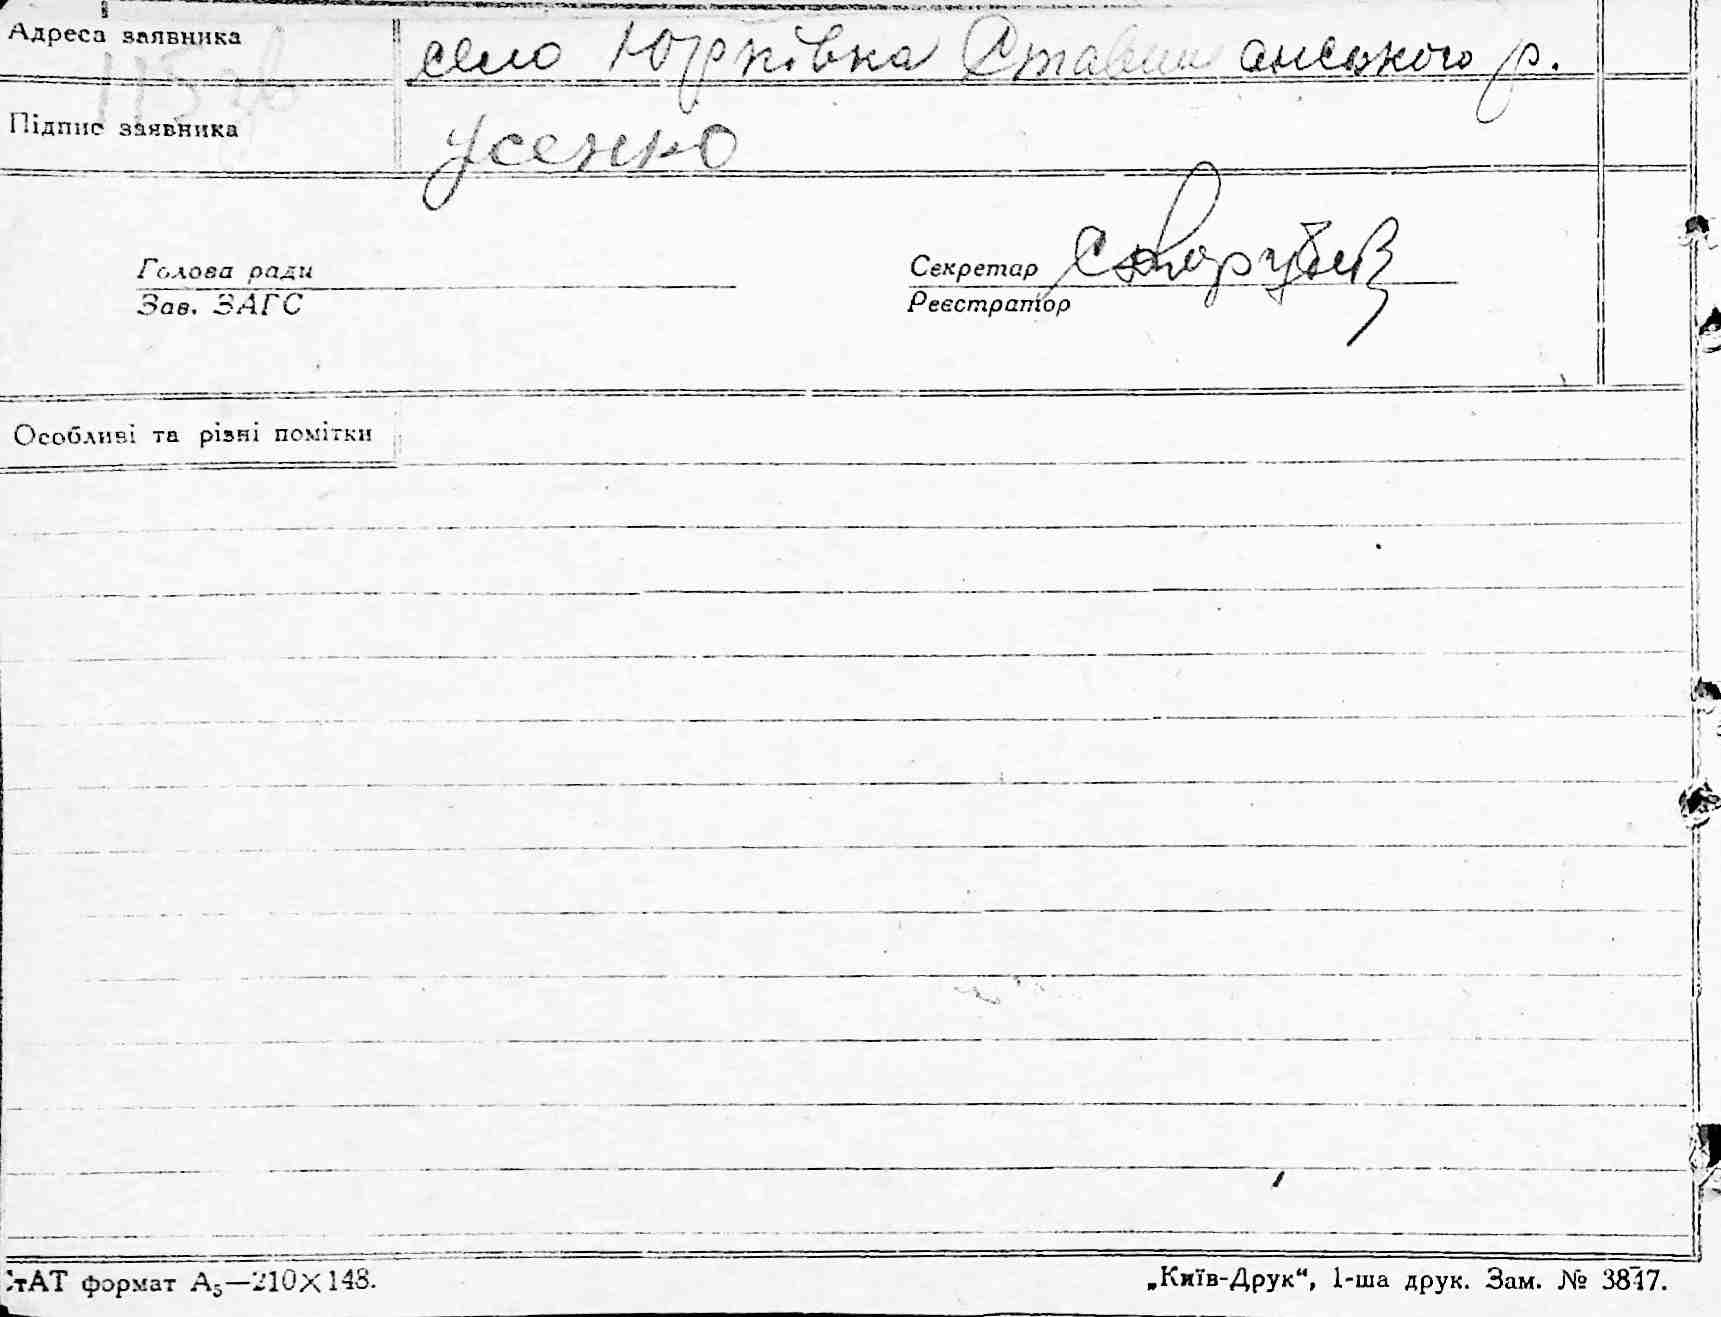 Адреса заявника село Юрківка Ставищанського р.
Підпис заявника Усенко
Голова ради Секретар
Зав. ЗАГС Реєстратор
Особливі та різні помітки
тАТ формат А5—210×148.
„Київ-Друк“, 1-ша друк. Зам. № 3847.